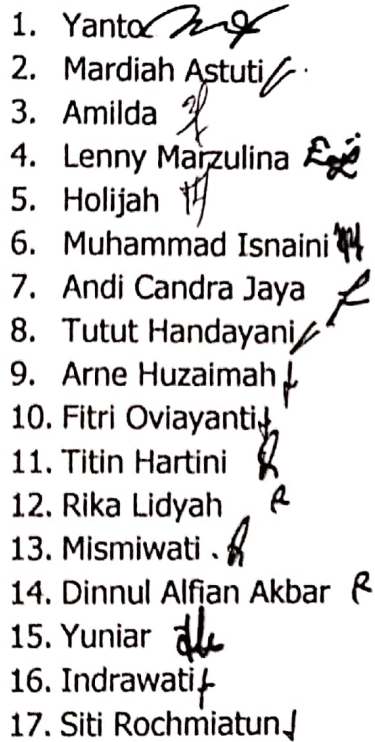 1. Yanto
2. Mardiah Astuti
3. Amilda
4. Lenny Marzulina
5. Holijah
6. Muhammad Isnaini
7. Andi Candra Jaya
8. Tutut Handayani
9. Arne Huzaimah
10. Fitri Oviayanti
11. Titin Hartini
12. Rika Lidyah
13. Mismiwati
14. Dinnul Alfian Akbar
15. Yuniar
16. Indrawati
17. Siti Rochmiatun